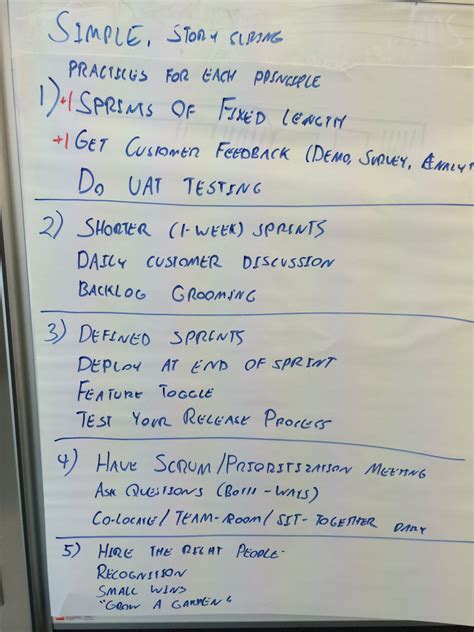 SIMPLE, STORY SLICING
PRACTICES FOR EACH PRINCIPLE
1) +1 SPRINTS OF FIXED LENGTH
+1 GET CUSTOMER FEEDBACK (DEMO, SURVEY, ANALYT
DO UAT TESTING
2) SHORTER (1-WEEK) SPRINTS
DAILY CUSTOMER DISCUSSION
BACKLOG GROOMING
3) DEFINED SPRINTS
DEPLOY AT END OF SPRINT
FEATURE TOGGLE
TEST YOUR RELEASE PROCESS
4) HAVE SCRUM/PRIORITIZATION MEETING
ASK QUESTIONS (BOTH-WAYS)
CO-LOCATE/TEAM-ROOM/SIT-TOGETHER DAILY
5) HIRE THE RIGHT PEOPLE-
RECOGNITION
SMALL WINS
"GROW A GARDEN"